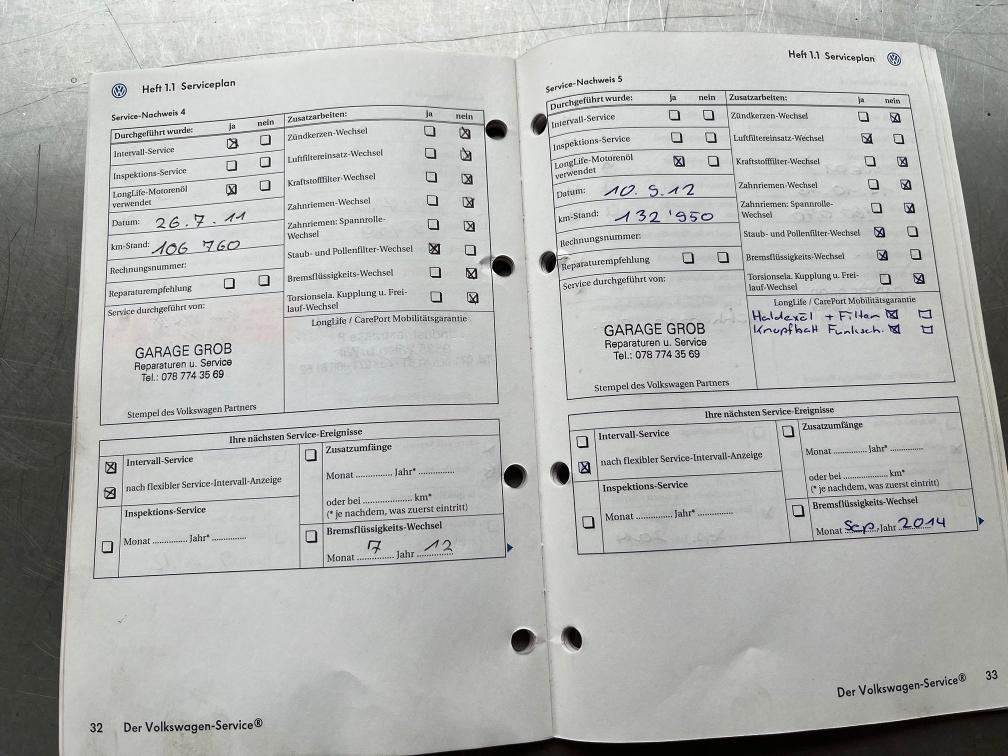 Heft 1.1 Serviceplan
Service-Nachweis 4
Durchgeführt wurde: ja nein
Intervall-Service
Inspektions-Service
LongLife-Motorenöl
verwendet
Datum: 26.7.11
km-Stand: 106 760
Rechnungsnummer:
Reparaturempfehlung
Service durchgeführt von:
GARAGE GROB
Reparaturen u. Service
Tel.: 078 774 35 69
Stempel des Volkswagen Partners
Zusatzarbeiten: ja nein
Zündkerzen-Wechsel
Luftfiltereinsatz-Wechsel
Kraftstofffilter-Wechsel
Zahnriemen-Wechsel
Zahnriemen: Spannrolle-
Wechsel
Staub- und Pollenfilter-Wechsel
Bremsflüssigkeits-Wechsel
Torsionsela. Kupplung u. Frei-
lauf-Wechsel
LongLife / CarePort Mobilitätsgarantie
Ihre nächsten Service-Ereignisse
Intervall-Service
nach flexibler Service-Intervall-Anzeige
Inspektions-Service
Monat ............ Jahr* ............
Zusatzumfänge
Monat ............ Jahr* ............
oder bei ................ km*
(* je nachdem, was zuerst eintritt)
Bremsflüssigkeits-Wechsel
Monat 7 Jahr 12
32 Der Volkswagen-Service®
Heft 1.1 Serviceplan
Service-Nachweis 5
Durchgeführt wurde: ja nein
Intervall-Service
Inspektions-Service
LongLife-Motorenöl
verwendet
Datum: 10.9.12
km-Stand: 132'950
Rechnungsnummer:
Reparaturempfehlung
Service durchgeführt von:
GARAGE GROB
Reparaturen u. Service
Tel.: 078 774 35 69
Stempel des Volkswagen Partners
Zusatzarbeiten: ja nein
Zündkerzen-Wechsel
Luftfiltereinsatz-Wechsel
Kraftstofffilter-Wechsel
Zahnriemen-Wechsel
Zahnriemen: Spannrolle-
Wechsel
Staub- und Pollenfilter-Wechsel
Bremsflüssigkeits-Wechsel
Torsionsela. Kupplung u. Frei-
lauf-Wechsel
LongLife / CarePort Mobilitätsgarantie
Haldexöl + Filter
Knopfbatt Funksch.
Ihre nächsten Service-Ereignisse
Intervall-Service
nach flexibler Service-Intervall-Anzeige
Inspektions-Service
Monat ............ Jahr* ............
Zusatzumfänge
Monat ............ Jahr* ............
oder bei ................ km*
(* je nachdem, was zuerst eintritt)
Bremsflüssigkeits-Wechsel
Monat Sep. Jahr 2014
Der Volkswagen-Service® 33